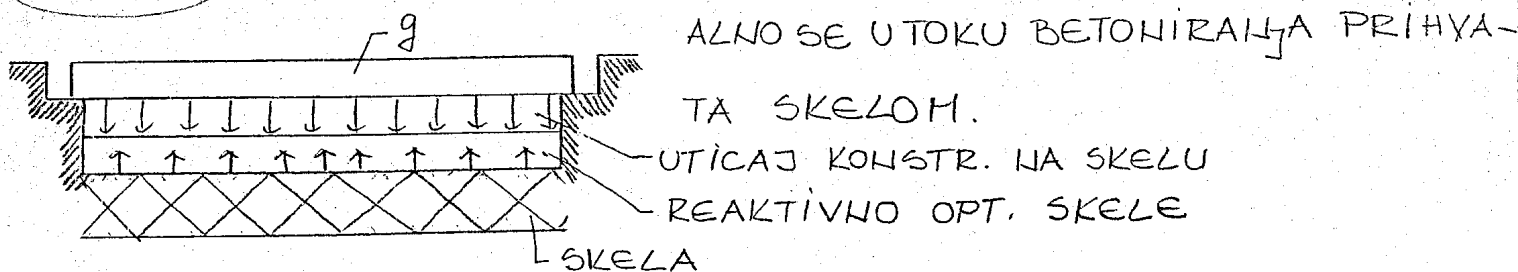 g
ALNO SE U TOKU BETONIRANJA PRIHVA-
TA SKELOM.
UTICAJ KONSTR. NA SKELU
REAKTIVNO OPT. SKELE
SKELA